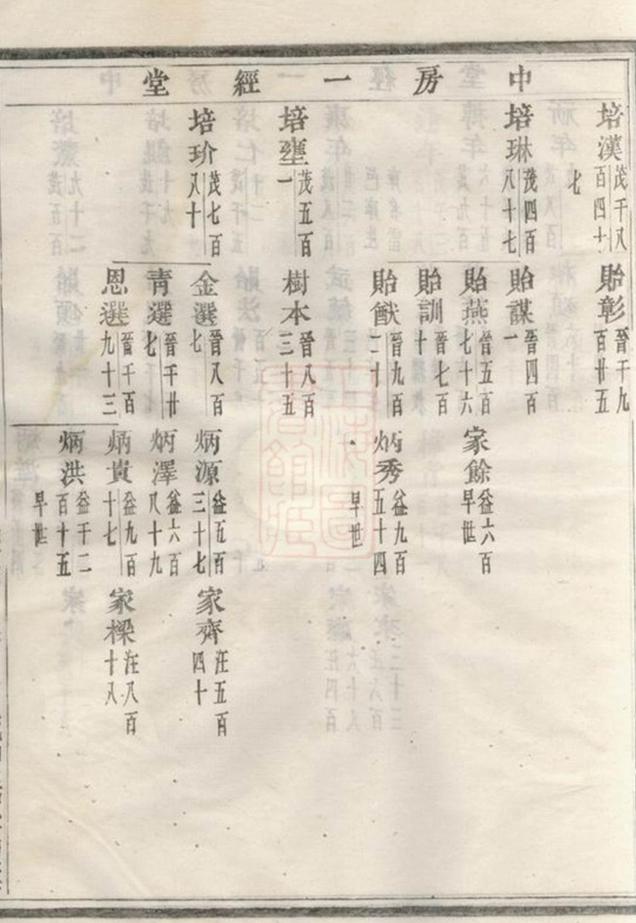 中房一經堂
培漢 茂千八百四十七
培琳 茂四百八十七
培壅 茂五百一
培玠 茂七百八十
貽彰 晉千九百廿五
貽謀 晉四百一
貽燕 晉五百七十六
貽訓 晉七百十
貽猷 晉九百二十
樹本 晉八百三十五
金選 晉八百七
青選 晉千廿七
恩選 晉千百九十三
家餘 益六百 早世
炳秀 益九百五十四 早世
炳源 益五百三十七
炳澤 益六百八十九
炳貴 益九百十七
炳洪 益千二百十五 早世
家齊 汪五百四十
家樑 汪八百十八